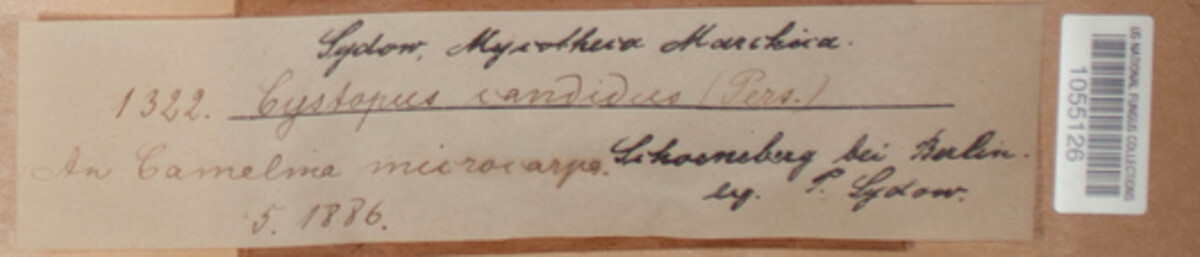 Sydow, Mycotheca Marchica.
1322. Cystopus candidus (Pers.)
An Camelina microcarpa. Schoeneberg bei Berlin.
leg. P. Sydow.
5. 1886.
US NATIONAL FUNGUS COLLECTIONS
1055126